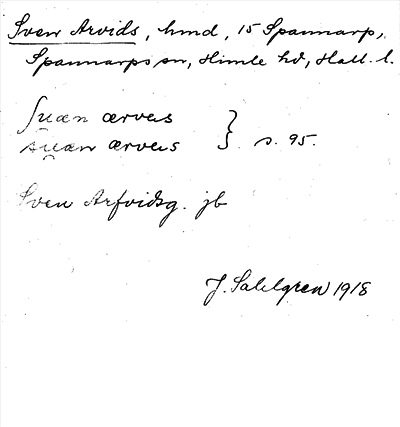 Sven Arvids, hmd, 15 Spannarp,
Spannarps sn, Himle hd, Hall. l.
ʃu̯æn ærves
su̯æn ærves } s. 95.
Sven Arfvidsg. jb
J. Sahlgren 1918